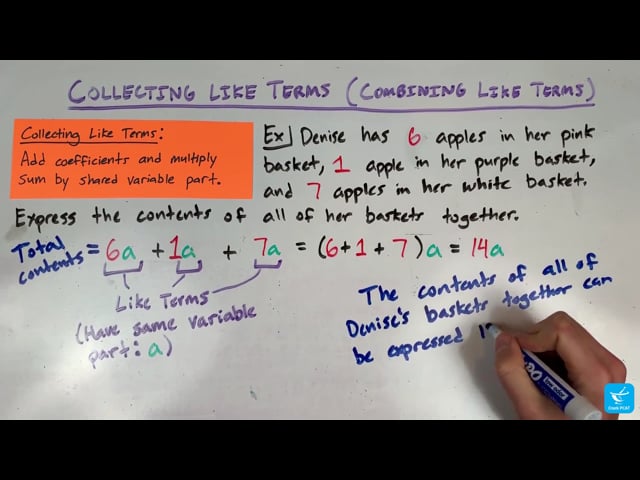 COLLECTING LIKE TERMS (COMBINING LIKE TERMS)
Collecting Like Terms:
Add coefficients and multiply
sum by shared variable part.
Ex Denise has 6 apples in her pink
basket, 1 apple in her purple basket,
and 7 apples in her white basket.
Express the contents of all of her baskets together.
Total contents = 6a + 1a + 7a = (6+1+7)a = 14a
Like Terms
(Have same variable
part: a)
The contents of all of
Denise's baskets together can
be expressed